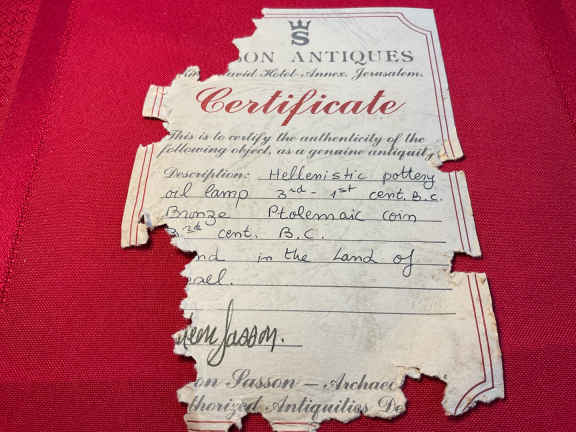 S
SON ANTIQUES
David Hotel Annex, Jerusalem.
Certificate
This is to certify the authenticity of the
following object, as a genuine antiquity
Description: Hellenistic pottery
oil lamp 3rd - 1st cent. B.C.
Bronze Ptolemaic coin
3rd cent. B.C.
nd in the Land of
ael.
Sasson.
on Sasson — Archaeo
thorized Antiquities De